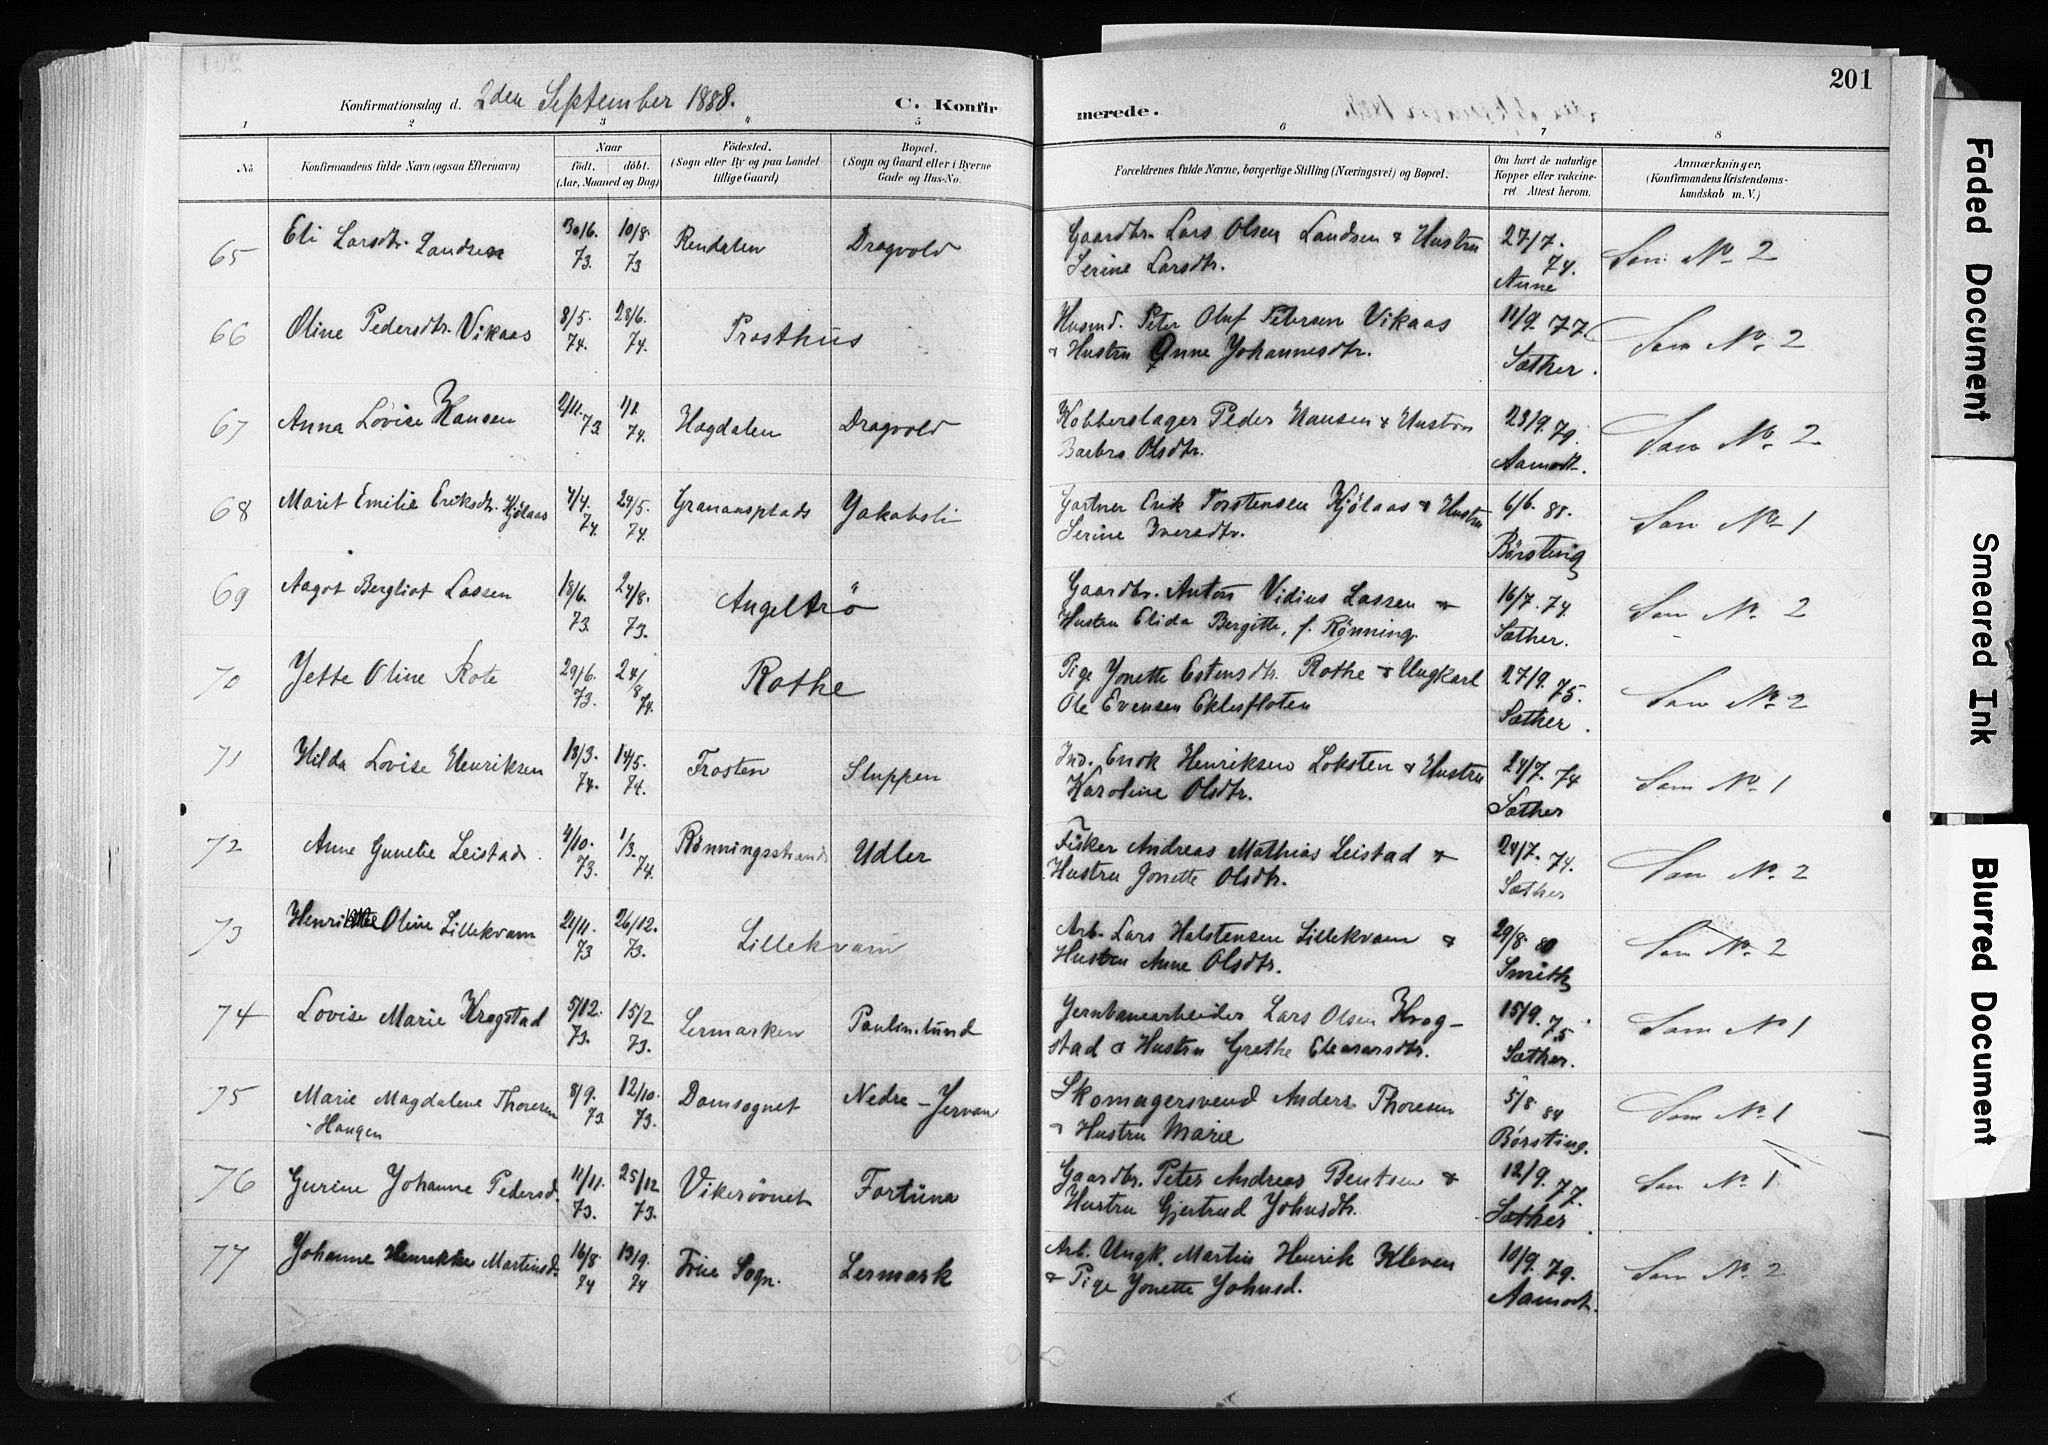 201
Konfirmationsdag d. 2den September 1888. C. Konfir merede.
1 2 3 4 5 6 7 8
No. Konfirmandens fulde Navn (ogsaa Efternavn) Naar Födt. döbt. (Aar, Maaned og Dag) Födested. (Sogn eller By og paa Landet tillige Gaard) Bopæl. (Sogn og Gaard eller i Byerne Gade og Hus-No. Forældrenes fulde Navne, borgerlige Stilling (Næringsvei) og Bopæl. Om havt de naturlige Kopper eller vakcineret. Attest herom. Anmærkninger. (Konfirmandens Kristendomskundskab m. V.)
65 Eli Larsdtr. Landsen 30/6. 73. 10/8 73 Rendalen Dragvold Gaardbr. Lars Olsen Landsen & Hustru 27/7. 74. Som No. 2
Serine Larsdtr. Anne
66 Oline Pedersdtr. Vikaas 8/5. 74. 28/6. 74. Presthus Husmd. Peter Oluf Petersen Vikaas 11/9. 77. Som No. 2
& Hustru Anne Johannesdtr. Sæther.
67 Anna Lovise Hansen 2/11. 73. 1/1. 74. Hagdalen Dragvold Kobberslager Peder Hansen & Hustru 23/9. 79. Som No. 2
Barbro Olsdtr. Aamodt.
68 Marit Emilie Eriksdtr. Kjølaas 4/4. 74. 24/5. 74. Granaasplads Jakobsli Gartner Erik Torstensen Kjølaas & Hustru 6/6. 88. Som No. 1
Serine Iversdtr. Børsting
69 Aagot Bergliot Lassen 18/6. 73. 24/8. 73. Angeltrö Gaardbr. Anton Vidius Lassen & 16/7. 74 Som No. 2
Hustru Elida Bergitte, f. Rønning. Sæther.
70 Jette Oline Rote 29/6. 73. 24/8 74. Rothe Pige Jonette Estensdtr. Rothe & Ungkarl 27/9. 75. Som No. 2
Ole Evensen Eklesfloten Sæther.
71 Hilda Lovise Henriksen 13/3. 74. 14/5. 74. Frosten Sluppen Ind. Enok Henriksen Loksten & Hustru 24/7. 74 Som No. 1
Karoline Olsdtr. Sæther
72 Anne Gunelie Leistad 4/10. 73. 1/3. 74. Rønningsstrand Udler Fisker Andreas Mathias Leistad & 24/7. 74. Som No. 2
Hustru Jonette Olsdtr. Sæther
73 Henrikke Oline Lillekvam 21/11. 73 26/12. 73. Lillekvam Arb. Lars Halstensen Lillekvam & 29/8. 80 Som No. 2
Hustru Anne Olsdtr. Smith
74 Lovise Marie Krogstad 5/12. 73. 15/2 73. Lermarken Paulinelund Jernbanearbeider Lars Olsen Krog- 15/9. 75 Som No 1
stad & Hustru Grethe Eleasarsdtr. Sæther.
75 Marie Magdalene Thoresen 8/9. 73. 12/10. 73. Domsognet Nedre-Jervan Skomagersvend Anders Thoresen 5/8 84 Som No. 1
-Haugen & Hustru Marie Børsting.
76 Gurine Johanne Pedersd. 11/11. 73. 25/12 73. Vikerøvnet Fortuna Gaardbr. Peter Andreas Bentsen & 12/9. 77. Som No. 1
Hustru Gjertrud Johnsdtr. Sæther
77 Johanne Henrikke Martinsd. 16/8 74 13/9. 74 Frue Sogn. Lermark Arb. Ungk. Martin Henrik Kleven 10/9. 79. Som No. 2
& Pige Jonette Johnsd. Aamodt.
Faded Document
Smeared Ink
Blurred Document